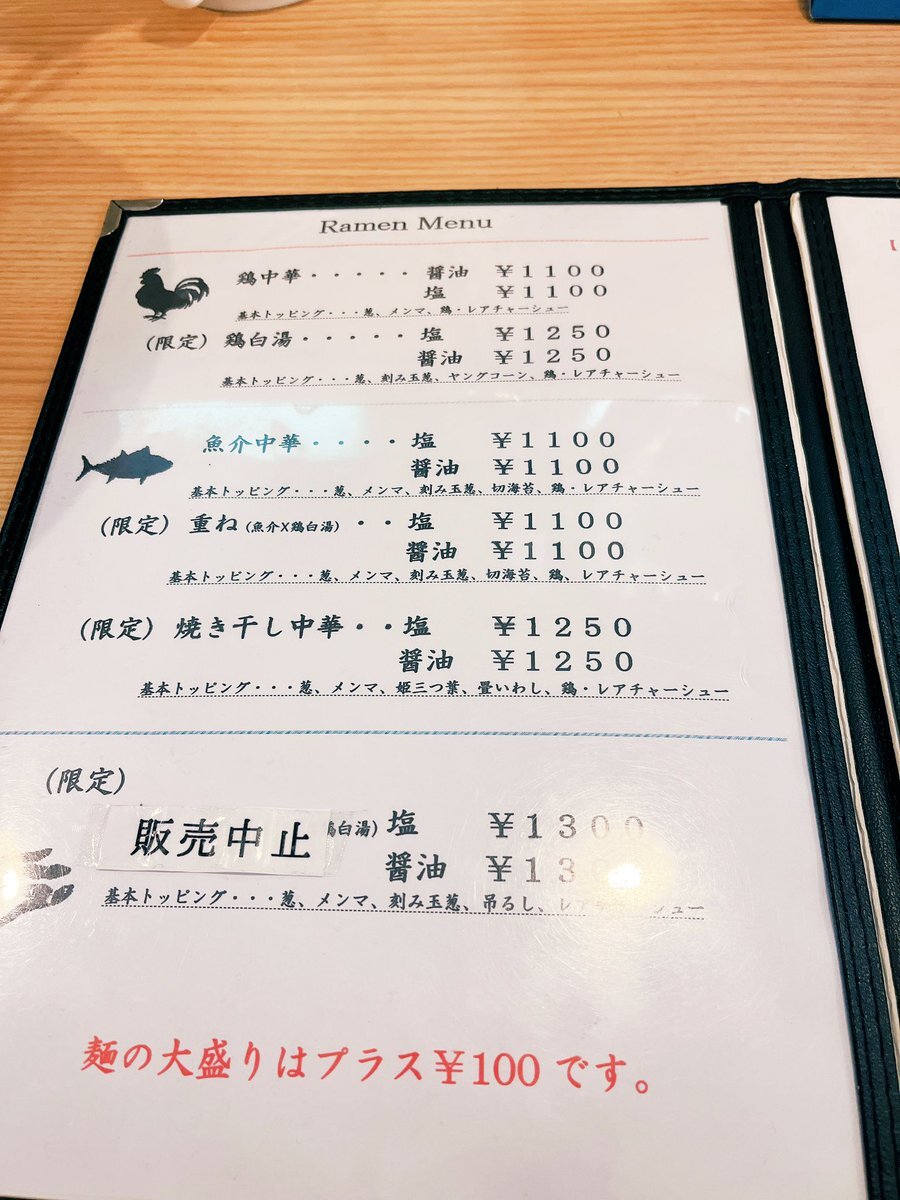 Ramen Menu
鶏中華・・・・・醤油 ￥1100
塩 ￥1100
基本トッピング・・・葱、メンマ、鶏・レアチャーシュー
(限定) 鶏白湯・・・・・塩 ￥1250
醤油 ￥1250
基本トッピング・・・葱、刻み玉葱、ヤングコーン、鶏・レアチャーシュー
魚介中華・・・・塩 ￥1100
醤油 ￥1100
基本トッピング・・・葱、メンマ、刻み玉葱、切海苔、鶏・レアチャーシュー
(限定) 重ね(魚介X鶏白湯)・・塩 ￥1100
醤油 ￥1100
基本トッピング・・・葱、メンマ、刻み玉葱、切海苔、鶏、レアチャーシュー
(限定) 焼き干し中華・・塩 ￥1250
醤油 ￥1250
基本トッピング・・・葱、メンマ、姫三つ葉、畳いわし、鶏・レアチャーシュー
(限定)
販売中止 鶏白湯) 塩 ￥1300
醤油 ￥130
基本トッピング・・・葱、メンマ、刻み玉葱、吊るし、レアチャーシュー
麺の大盛りはプラス￥100です。
【